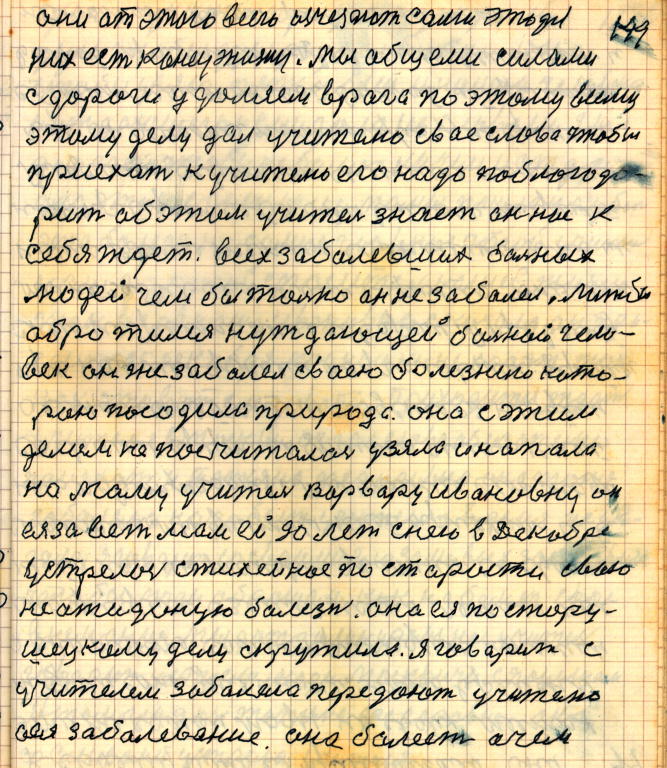 они от этого всего изчезают сами этоди
них ест конец жизни. мы общеми силами
с дороги удоляем врага по этому всему
этому делу дал учителю свае слова чтобы
приехат к учителю его надо поблогодо-
рит об этим учител знает он нас к
себя ждет. всех забалевших болных
людей чем бы толко он не заболел. лиж бы
обротилися нуждающей болной чело-
век он же забалел сваею болезнию кото-
рою посодила природа. она с этим
делам не посчиталас узяла и напала
на маму учител Варвару Ивановну он
ея завет мам ей 90 лет с нею в Декабре
устрелас стихейное по старости свою
неожиданую болезн. она ея по стору-
шецкому делу скрутила. я говарит с
учителем забалела передают учителю
ся забалевание. она болеет а чем